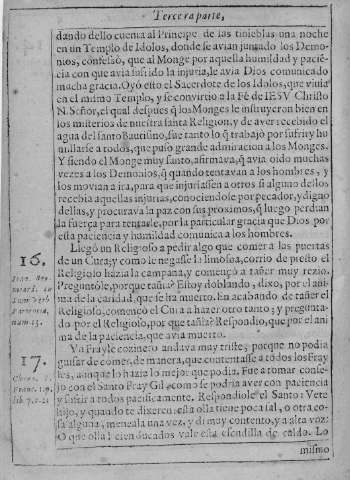 Tercera parte,
dando dello cuenta al Principe de las tinieblas una noche
en un Templo de Idolos, donde se avian juntado los Demo-
nios, confessò, que al Monge por aquella humildad y paciē-
cia con que avia sufrido la injuria, le avia Dios comunicado
mucha gracia. Oyò esto el Sacerdote de los Idolos, que vivia
en el mismo Templo, y se convirtio a la Fè de IESV Christo
N. Señor, el qual despues q̄ los Monges le instruyeron bien en
los misterios de nuestra santa Religon, y de aver recebido el
agua del santo Bautismo, fue tanto lo q̄ trabajò por sufrir y hu
millarse a todos, que puso grande admiracion a los Monges.
Y siendo el Monge muy santo, afirmava, q̄ avia oido muchas
vezes a los Demonios, q̄ quando tentavan a los hombres, y
los movian a ira, para que injuriassen a otros si alguno dellos
recebia aquellas injurias, conociendose por pecador, y digno
dellas, y procurava la paz con sus proximos, q̄ luego perdian
la fuerça para tentarle, por la particular gracia que Dios por
esta paciencia y humildad comunica a los hombres.
16.
Llegò un Religioso a pedir algo que comer a las puertas
de un Cura; y como le negasse la limosna, corrio de presto el
Religioso hàzia la campana, y començò a tañer muy rezio.
Preguntòle, porque tañia? Estoy doblando, dixo, por el ani-
num. 15.
ma de la caridad, que se ha muerto. En acabando de tañer el
Religioso, començò el Cura a hazer otro tanto; y pregunta-
do por el Religioso, porque tañia? Respondio, que por el ani
ma de la paciencia, que avia muerto.
17.
Vn Frayle cozinero andava muy triste, porque no podia
guisar de comer, de manera, que contentasse a todos los Fray
les, aunque lo hazia lo mejor que podia. Fue a tomar conse-
Franc.
jo con el Santo Fray Gil, como se podria aver con paciencia
lib. 7.
y sufrir a todos pacificamente. Respondiole el Santo: Vete
hijo, y quando te dixeren: esta olla tiene poca sal, o otra co-
sa alguna, meneala una vez, y di muy contento, y a alta voz:
O que olla! cien ducados vale esta escudilla de caldo. Lo
mismo